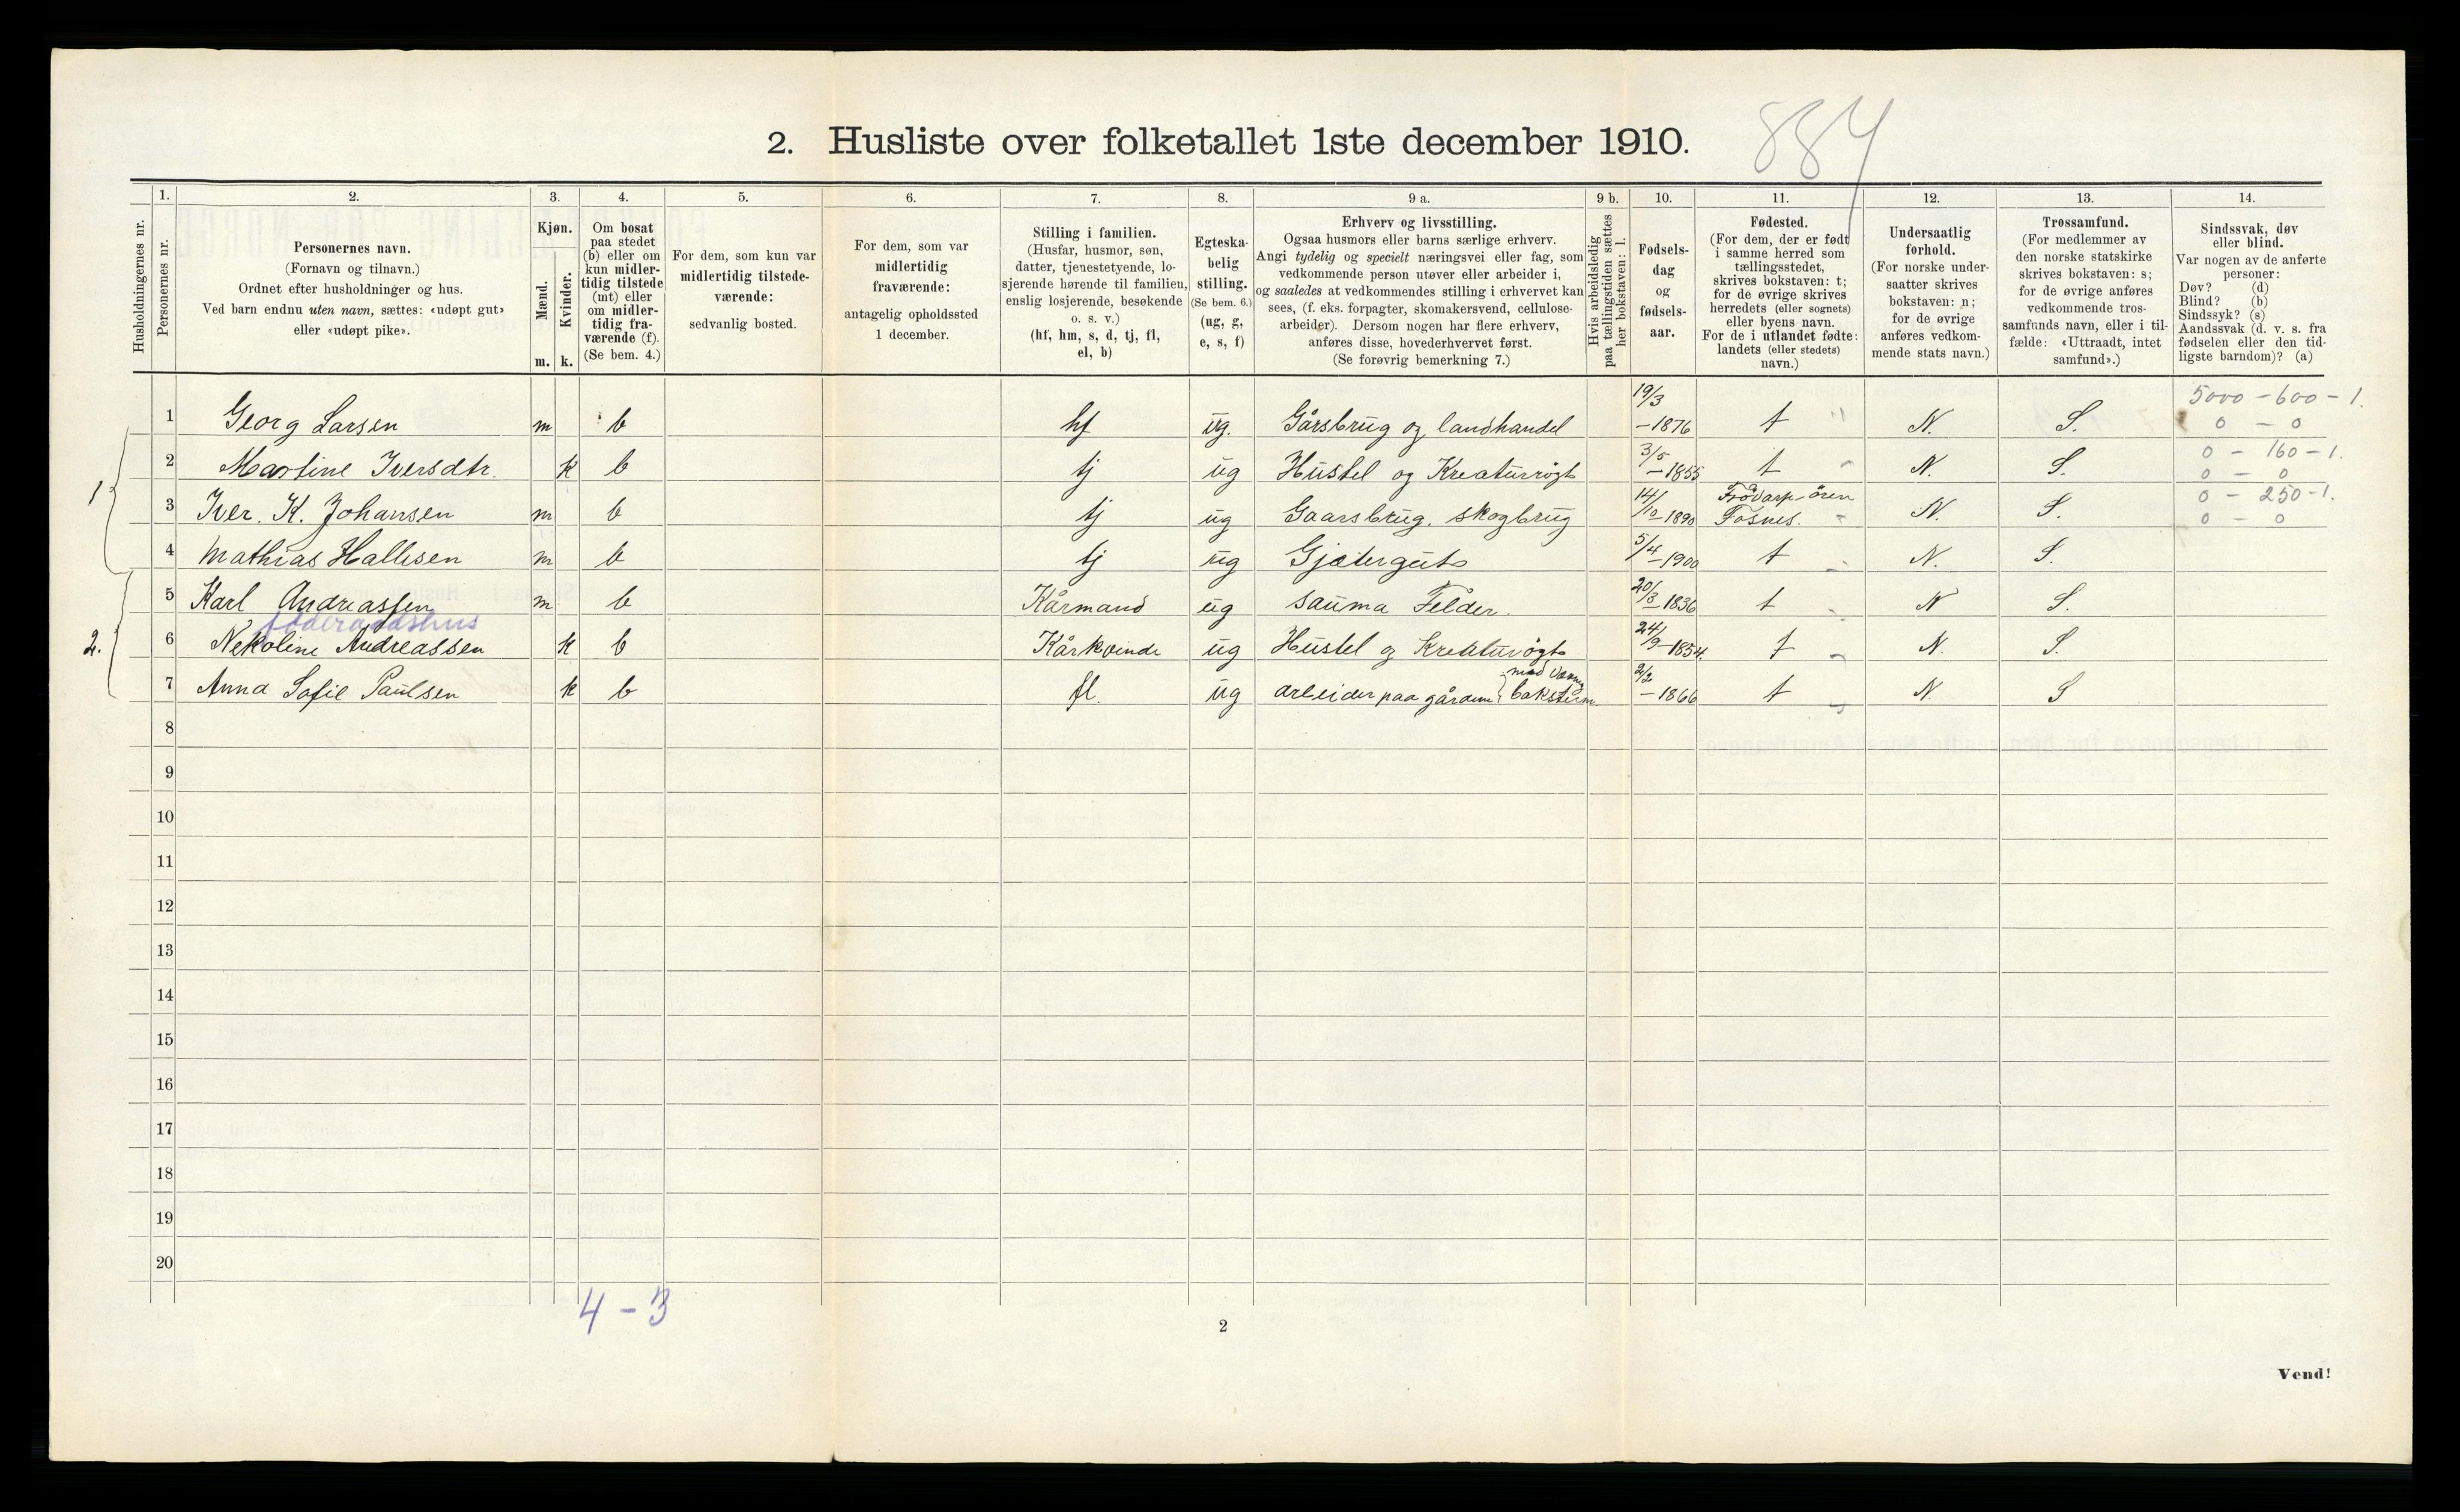 884
2. Husliste over folketallet 1ste december 1910.
Husholdningernes nr.
1. Personernes nr.
2. Personernes navn.
(Fornavn og tilnavn.)
Ordnet efter husholdninger og hus.
Ved barn endnu uten navn, sættes: «udøpt gut»
eller «udøpt pike».
3. Kjøn.
Mænd. m.
Kvinder. k.
4. Om bosat
paa stedet
(b) eller om
kun midler-
tidig tilstede
(mt) eller
om midler-
tidig fra-
værende (f).
(Se bem. 4.)
5. For dem, som kun var
midlertidig tilstede-
værende:
sedvanlig bosted.
6. For dem, som var
midlertidig
fraværende:
antagelig opholdssted
1 december.
7. Stilling i familien.
(Husfar, husmor, søn,
datter, tjenestetyende, lo-
sjerende hørende til familien,
enslig losjerende, besøkende
o. s. v.)
(hf, hm, s, d, tj, fl,
el, b)
8. Egteska-
belig
stilling.
(Se bem. 6.)
(ug, g,
e, s, f)
9 a. Erhverv og livsstilling.
Ogsaa husmors eller barns særlige erhverv.
Angi tydelig og specielt næringsvei eller fag, som
vedkommende person utøver eller arbeider i,
og saaledes at vedkommendes stilling i erhvervet kan
sees, (f. eks. forpagter, skomakersvend, cellulose-
arbeider). Dersom nogen har flere erhverv,
anføres disse, hovederhvervet først.
(Se forøvrig bemerkning 7.)
9 b. Hvis arbeidsledig
paa tællingstiden sættes
her bokstaven: l.
10. Fødsels-
dag
og
fødsels-
aar.
11. Fødested.
(For dem, der er født
i samme herred som
tællingsstedet,
skrives bokstaven: t;
for de øvrige skrives
herredets (eller sognets)
eller byens navn.
For de i utlandet fødte:
landets (eller stedets)
navn.)
12. Undersaatlig
forhold.
(For norske under-
saatter skrives
bokstaven: n;
for de øvrige
anføres vedkom-
mende stats navn.)
13. Trossamfund.
(For medlemmer av
den norske statskirke
skrives bokstaven: s;
for de øvrige anføres
vedkommende tros-
samfunds navn, eller i til-
fælde: «Uttraadt, intet
samfund».)
14. Sindssvak, døv
eller blind.
Var nogen av de anførte
personer:
Døv? (d)
Blind? (b)
Sindssyk? (s)
Aandssvak (d. v. s. fra
fødselen eller den tid-
ligste barndom)? (a)
1 Georg Larsen m b hf ug. Gårsbrug og landhandel 19/3 -1876 t N. S. 5000 - 600 - 1. 0 - 0
1. 2 Martine Iversdtr. k b tj ug Hustel og Kreaturrøgt 3/5 -1855 t N. S. 0 - 160 - 1. 0 - 0
3 Iver. K. Johansen m b tj ug Gaarsbrug. skogbrug 14/10-1890 Fosnes. N. S. 0 - 250 - 1. 0 - 0
4 Mathias Hallesen m b tj ug Gjætergut 5/4-1900 t N. S.
5 Karl Andreassen m b Kårmand ug sauma Felder. 20/3 1836 t N S.
føderaadshus
2. 6 Nekoline Andreassen k b Kårkvinde ug Hustel og Kreaturrøgt 24/9-1854. t N. S.
7 Anna Sofie Paulsen k b fl. ug arbeider paa gården 2/2 -1866 t N S
8
9
10
11
12
13
14
15
16
17
18
19
20
4 - 3
2
Vend!